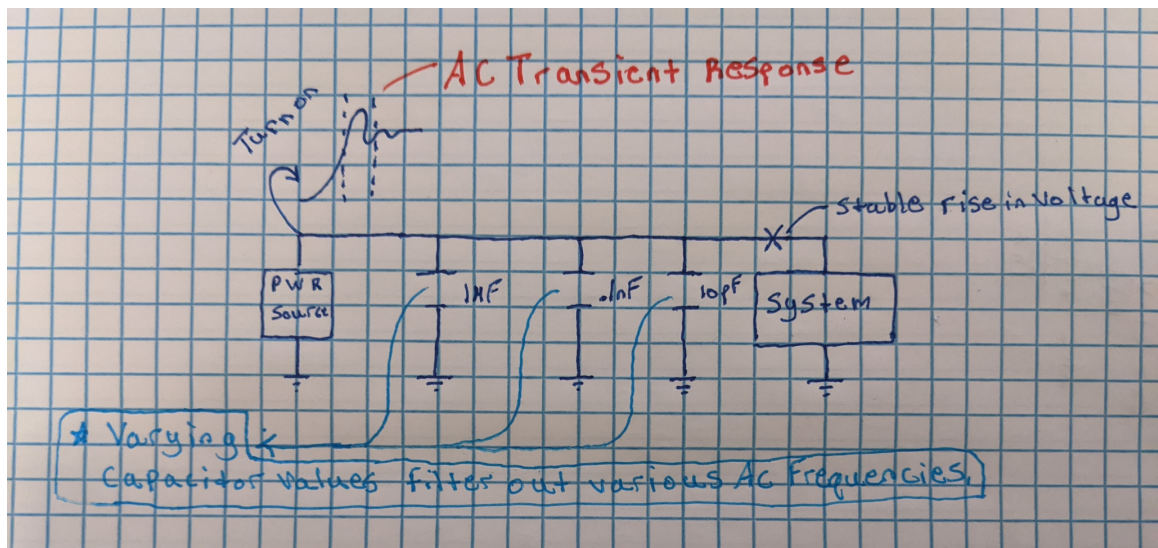 AC Transient Response
Turn on
stable rise in voltage
PWR
Source
1µF
.1nF
10pF
System
* Varying
Capacitor values filter out various AC Frequencies.